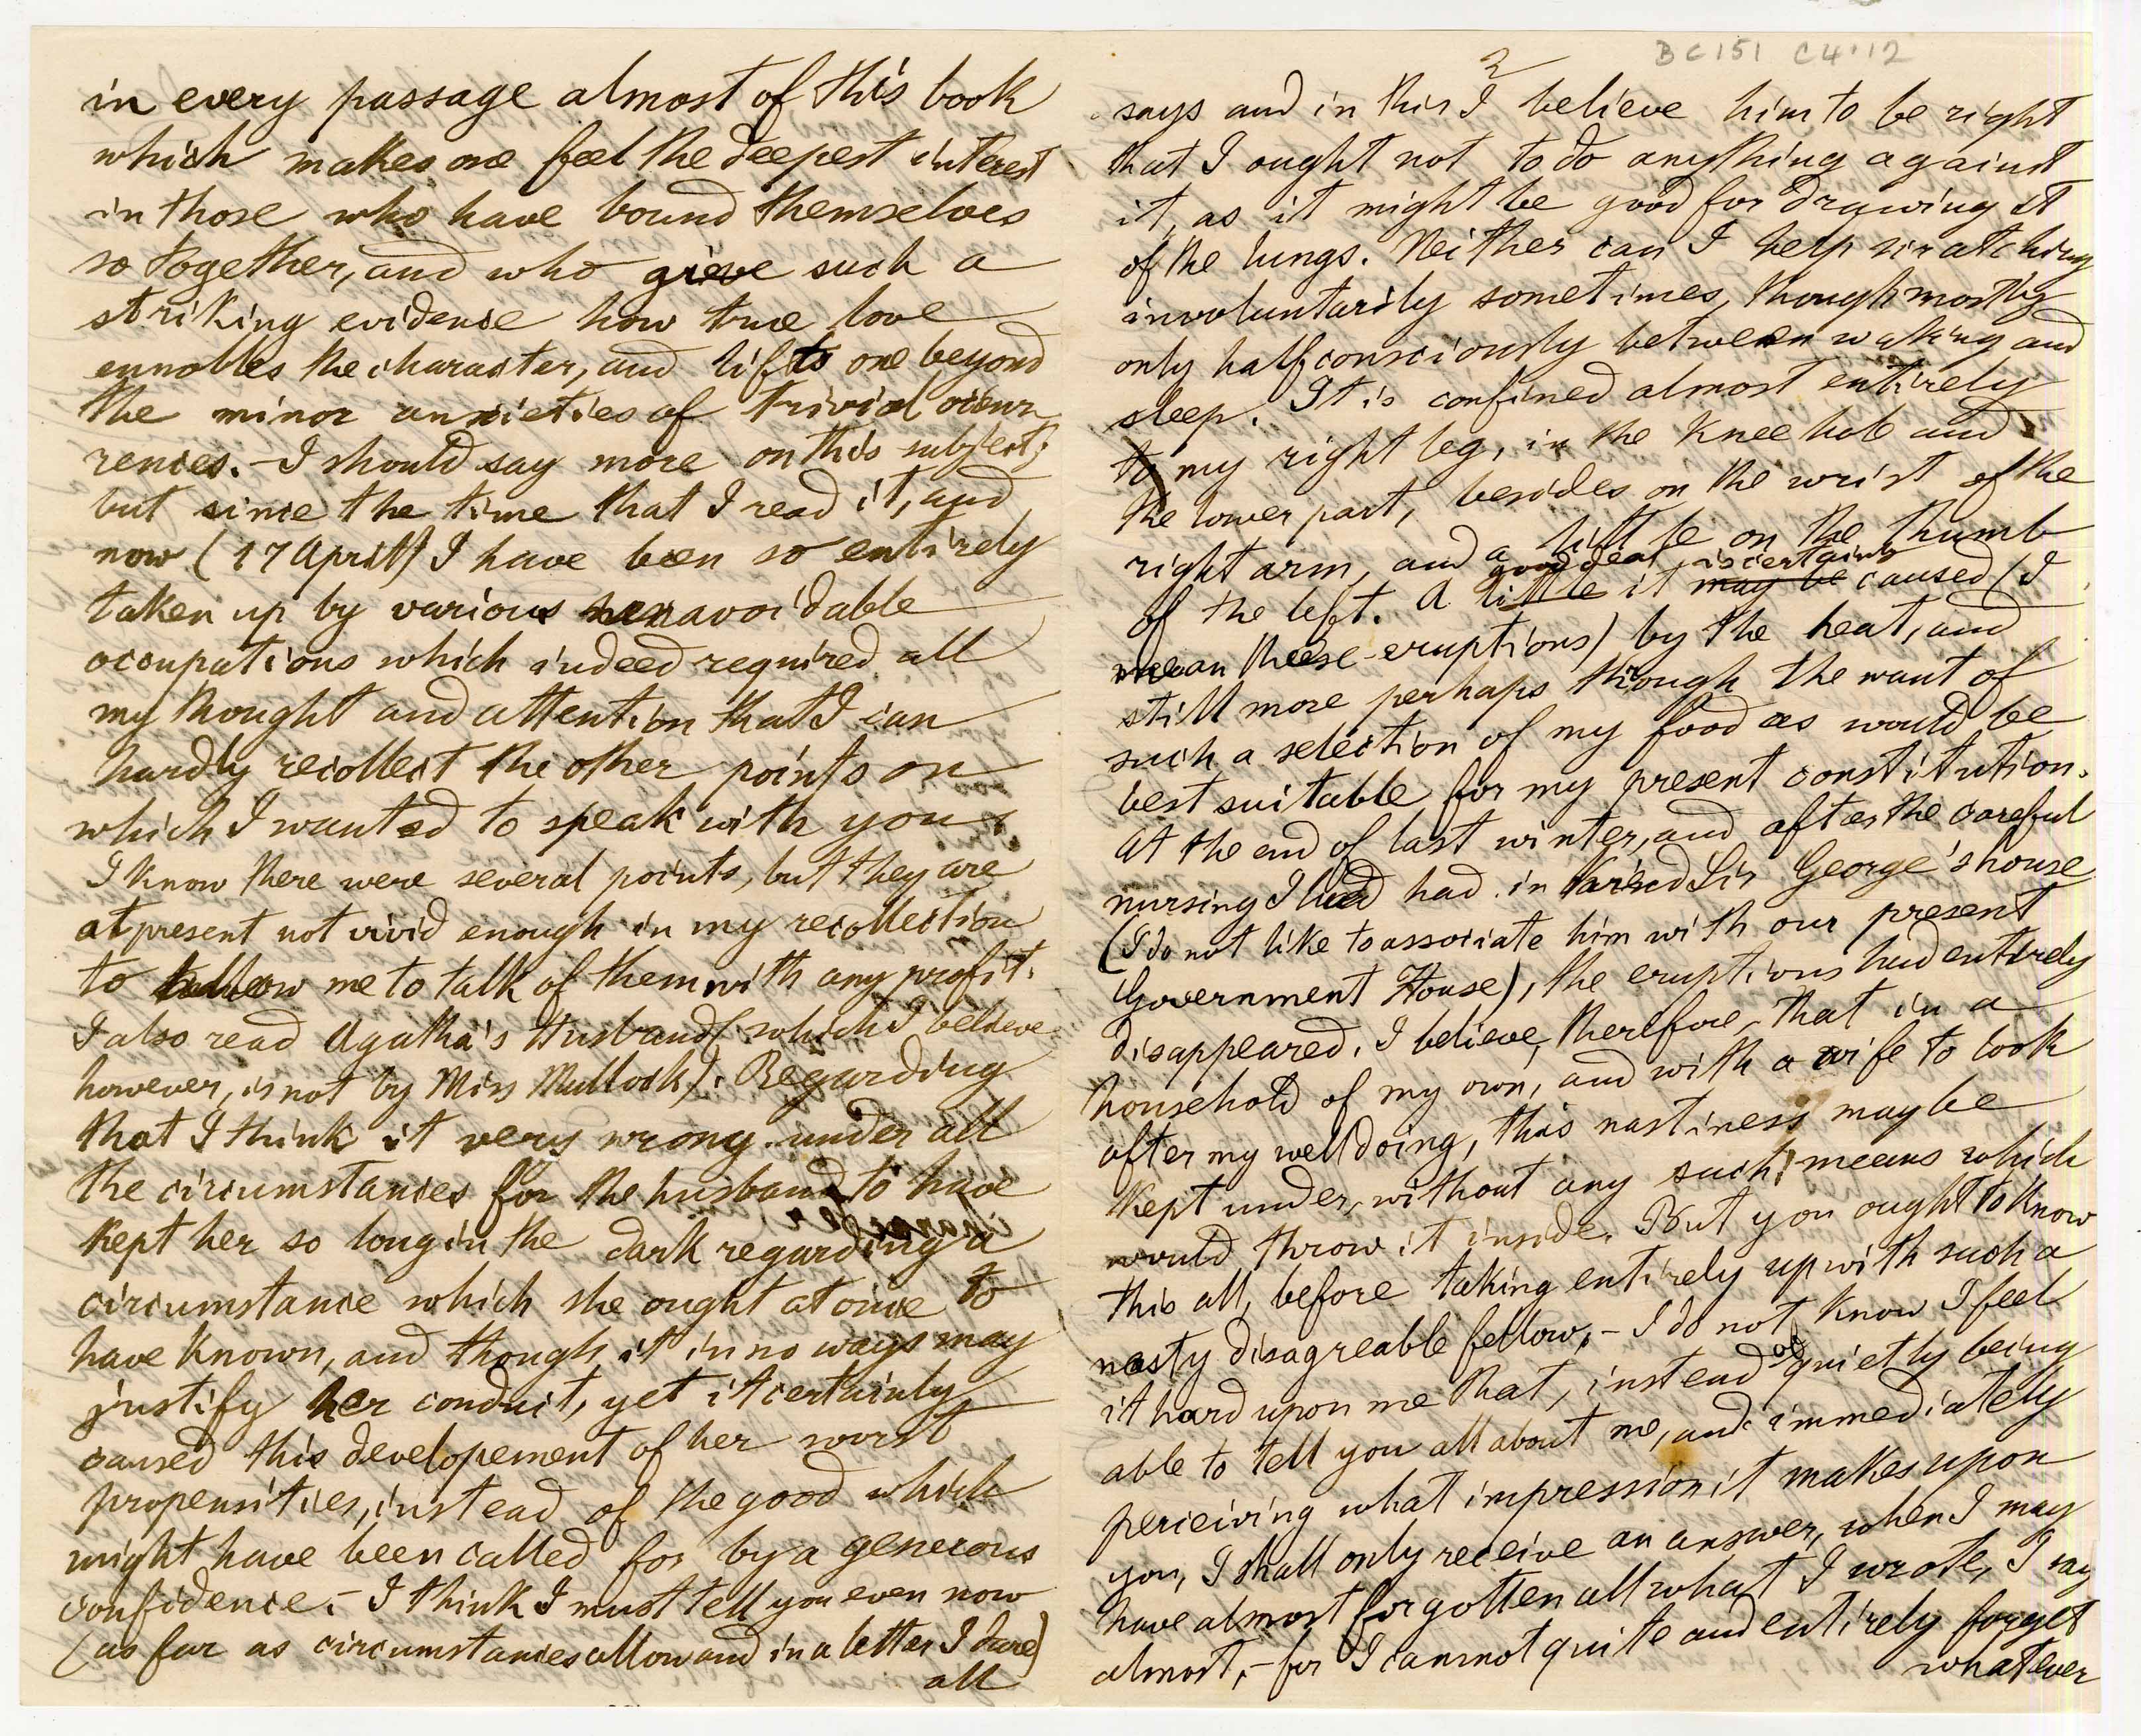 in every passage almost of this book
which makes one feel the deepest interest
in those who have bound themselves
so together, and who give such a
striking evidence how true love
ennobles the character, and lifts one beyond
the minor anxieties of trivial occur
rences. – I should say more on this subject;
but since the time that I read it, and
now (17 April) I have been so entirely
taken up by various unavoidable
occupations which indeed required all
my thought and attention that I can
hardly recollect the other points on
which I wanted to speak with you.
I know there were several points, but they are
at present not vivid enough in my recollection
to allow me to talk of them with any profit.
I also read Agatha's Husband (which I believe
however, is not by Miss Mullock). Regarding
that I think it very wrong under all
the circumstances for the husband to have
kept her so long in the dark regarding a
circumstance which she ought at once to
have known, and though it in no ways may
justify her conduct, yet it certainly
caused this developement of her worst
propensities, instead of the good which
might have been called for by a generous
confidence. – I think I must tell you even now
(as far as circumstances allow and in a letter I dare)
all
BC151 C4.12
2
says and in this I believe him to be right
that I ought not to do anything against
it, as it might be good for drawing it
of the lungs. Neither can I help scratching
involuntarily sometimes, though mostly
only half consciously between waking and
sleep. It is confined almost entirely
to my right leg, in the knee hole and
the lower part, besides on the wrist of the
right arm, and a little on the thumb
good deal is certainly
of the left. A little it may be caused (I
mean these eruptions) by the heat, and
still more perhaps through the want of
such a selection of my food as would be
best suitable for my present constitution.
At the end of last winter, and after the careful
nursing I had had in Sir George's house
(I do not like to associate him with our present
Government House), the eruptions had entirely
disappeared. I believe, therefore, that in a
household of my own, and with a wife to look
after my welldoing, this nastiness may be
kept under, without any such means which
would throw it inside. But you ought to know
this all, before taking entirely up with such a
nasty disagreable fellow. – I do not know I feel
it hard upon me that, instead of quietly being
able to tell you all about me, and immediately
perceiving what impression it makes upon
you, I shall only receive an answer, when I may
have almost forgotten all what I wrote, I say
almost, – for I cannot quite and entirely forget
whatever